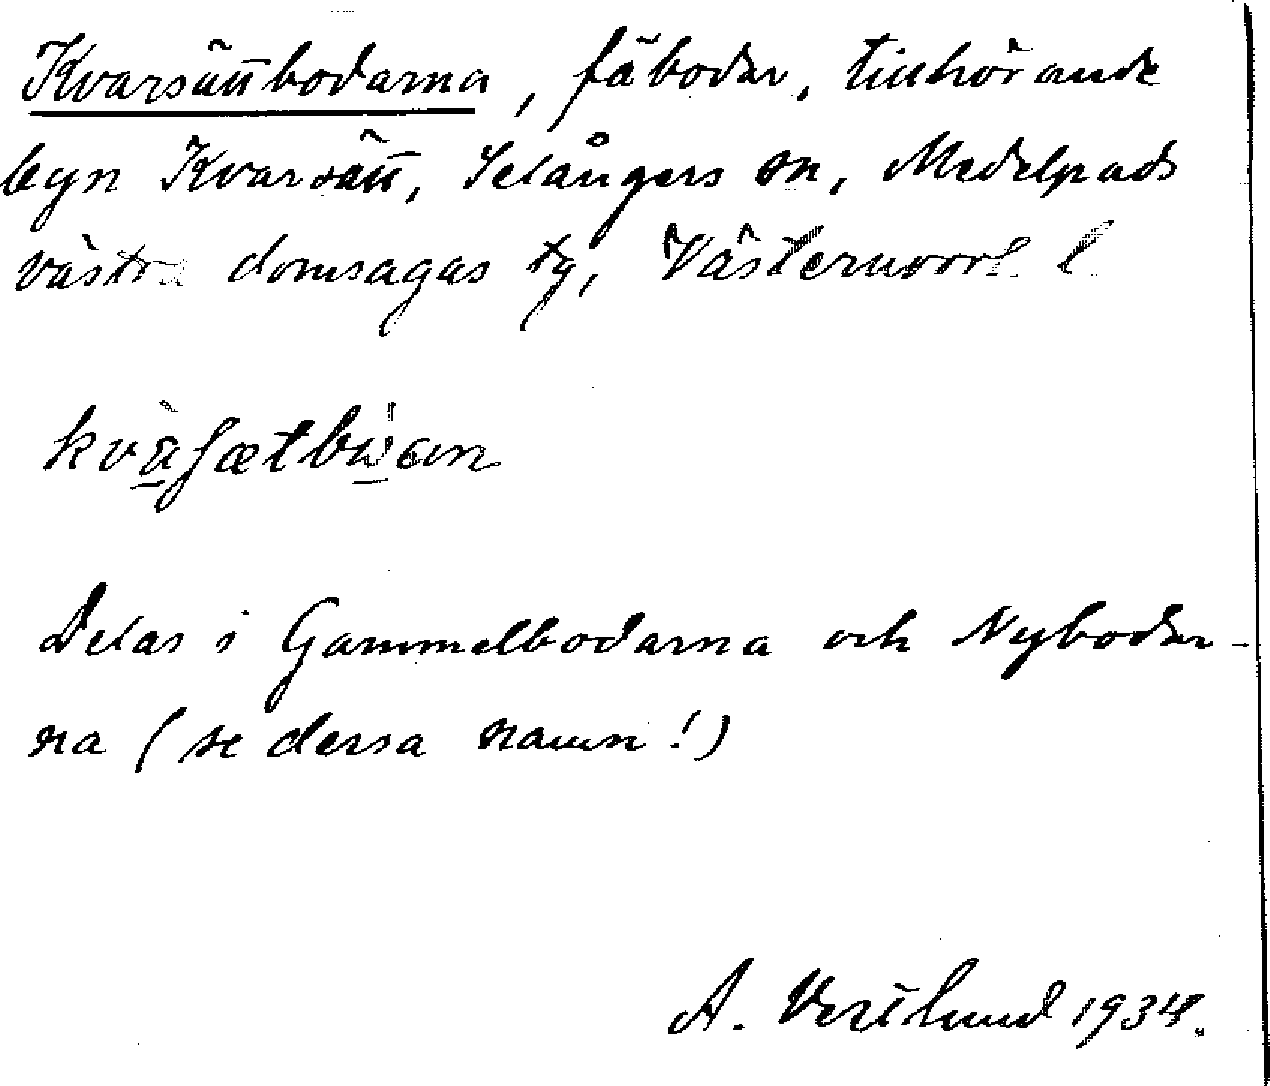 Kvarsättbodarna, fäbodar, tillhörande
byn Kvarsätt, Selångers sn, Medelpads
västra domsagas tg, Västernorrl. l.
Delas i Gammelbodarna och Nybodar-
na (se dessa namn!)
A. Vestlund 1934.